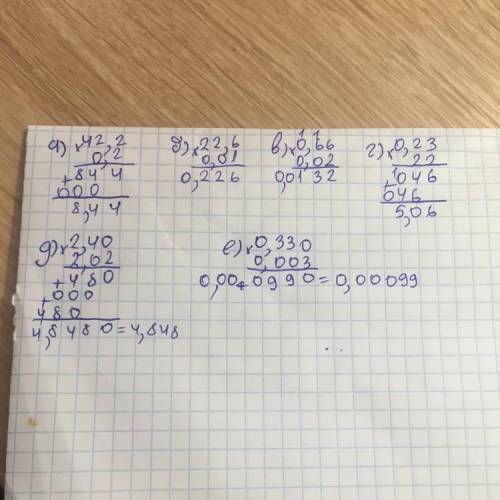 а) × 42,2 б) × 22,6 в) × 0,66 г) × 0,23
0,2 0,01 0,02 22
+ 844 0,226 0,0132 + 046
000 046
8,44 5,06
д) × 2,40 е) × 0,330
2,02 0,003
+ 480 0,000990 = 0,00099
+ 000
480
4,8480 = 4,848